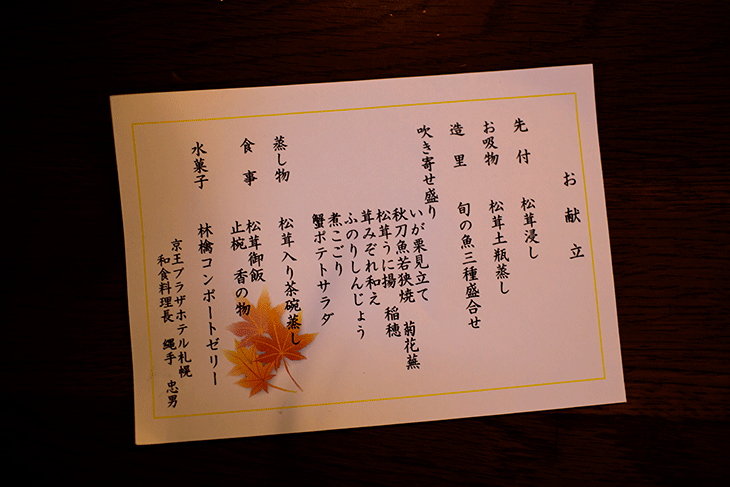 お献立
先付 松茸浸し
お吸物 松茸土瓶蒸し
造里 旬の魚三種盛合せ
吹き寄せ盛り
いが栗見立て
秋刀魚若狭焼 菊花蕪
松茸うに揚 稲穂
茸みぞれ和え
ふのりしんじょう
煮こごり
蟹ポテトサラダ
蒸し物 松茸入り茶碗蒸し
食事 松茸御飯
止椀 香の物
水菓子 林檎コンポートゼリー
京王プラザホテル札幌
和食料理長 縄手 忠男